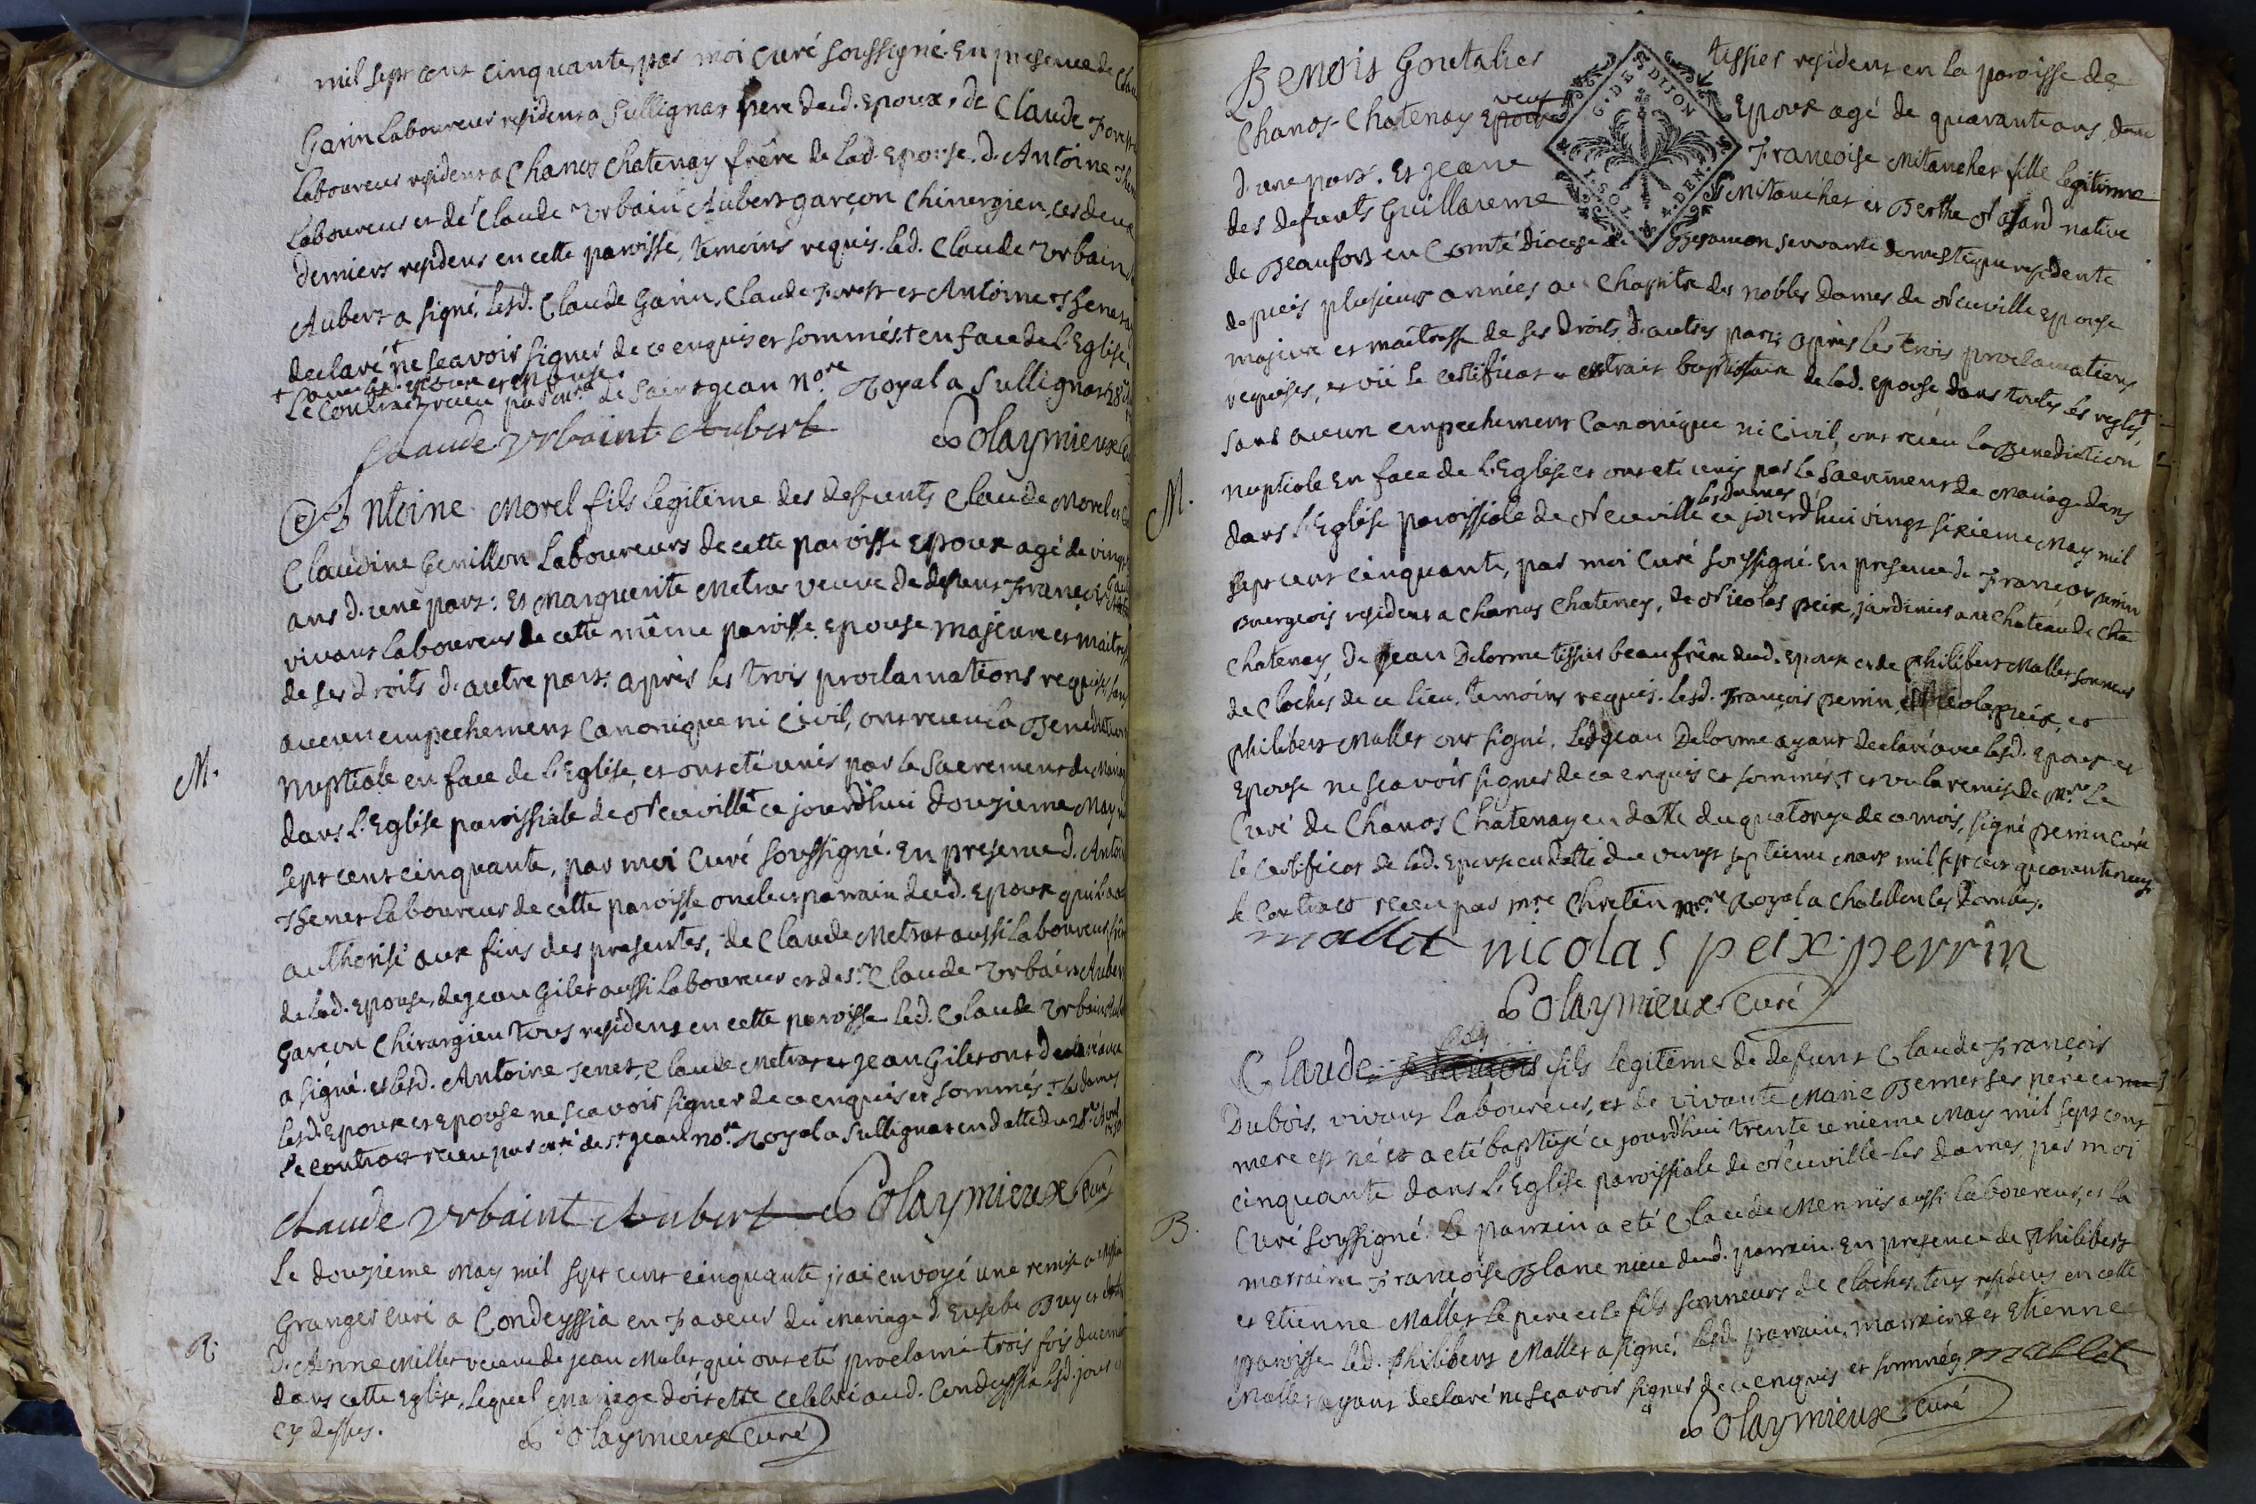 mil sept cent cinquante, par moi curé soussigné. En presence de
Garin Laboureur resident a Sullignat pere dud. Epoux, de Claude
Laboureur resident a Chanos Chatenay frère de lad. Epouse, d. Antoine
Laboureur et de sr Claude Urbain Aubert garçon chirurgien, ces deux
derniers residens en cette paroisse, temoins requis. led. Claude Urbain
Aubert a signé, lesd. Claude Garin, Claude Forest et Antoine Thenet
declaré ne sçavoir signer de ce enquis et sommés + en face de L'Eglise.
+ avec led. epoux et epouse.
Le contract reçu par de Saint jean nore Royal a Sullignat 28
Claude Urbaint Aubert Polaymieux
Antoine Morel fils legitime des defunts Claude Morel et
Claudine Genillon Laboureurs de cette paroisse Epoux agé de vingt
ans d'une part: Et Marguerite Metras veuve de defunt François
vivant laboureur de cette même paroisse epouse majeure et maitresse
de ses droits d'autre part: après les trois proclamations requises, sans
aucun empechement canonique ni civil, ont receu la Benediction
M.
Nuptiale en face de L'Eglise, et ont eté unis par le Sacrement de Mariage
dans L'Eglise paroissiale de Neuville + ce jourd'hui douzieme May
sept cent cinquante, par moi Curé soussigné. En presence d. Antoine
Thenet Laboureur de cette paroisse oncle et parrain dud. Epoux qui l'a
authorisé aux fins des presentes, de Claude Metras aussi Laboureur frère
de lad. Epouse, de jean Gilet aussi Laboureur et de sr. Claude Urbain Aubert
Garçon Chirurgien tous residens en cette paroisse led. Claude Urbain
a signé. et lesd. Antoine Tenet, Claude Metras et jean Gilet ont declaré avec
lesd. Epoux et Epouse ne sçavoir signer de ce enquis et sommés + les dames
Le contract receu par de st. jean nore. Royal a Sullignat en datte du 28e. Avril
Claude Urbaint Aubert Polaymieux curé
Le douzieme May mil sept cent cinquante j'ai envoyé une remise a
Granger curé a Condeyssia en Faveur du Mariage d'Eusebe Buy et
R.
D. Anne Millet veuve de jean Mulet qui ont eté proclamé trois fois
dans cette Eglise, Lequel Mariage doit etre celebré aud. Condeyssia lesd. jour
cy dessus. Polaymieux Curé
Benoit Goutalier tissier resident en la paroisse de
G. DE DIJON
1. SOL 4. DEN.
veuf
Chanos-Chatenay Epoux Epoux agé de quarante ans, d'une
d'une part. Et jeane Francoise Mitancher fille legitime
des defunts Guillaueme Mitancher et Berthe native
de Beaufort en Comté diocese de Besancon, servante domestique residente
depuis plusieur années au Chapitre des nobles Dames de Neuville Epouse
majeure et maitresse de ses droits d'autre part; après les trois proclamations
requises, et vû le certificat et extrait baptistaire de lad. epouse dans toutes les regles,
sans aucun empechement canonique ni civil, ont receu la Benediction
M.
nuptiale En face de L'Eglise et ont eté unis par le Sacrement de Mariage dans
les dames
dans L'Eglise paroissiale de Neuville ce jourd'hui vingt sixieme May mil
Sept cent cinquante, par moi Curé soussigné. En presence de François perrin
Bourgeois resident a Chanos Chatenay, de Nicolas peix, jardinier au Chateau de Cha
chatenay de jean Delorme tissier beaufrère dud. epoux et de Philibert Mallet sonneur
de cloches de ce lieu, temoins requis. lesd. François perrin, Nicolas peix, et
Philibert Mallet ont signé. Led. jean Delorme ayant declaré avec lesd. Epoux et
Epouse ne sçavoir signer de ce enquis et sommés + et vu la remise de Mre Le
Curé de Chanos Chatenay en datte du quatorze de ce mois, signé perrin curé
le certificat de lad. Epouse en datte du vingt septieme Mars mil sept cent quarante neuf
le contract receu par Mre Chretien nore Royal a Chatillon les Dombes.
mallet nicolas peix perrin
Polaymieux Curé
Claude fils legitime de defunt Claude François
Dubois, vivant Laboureur, et de vivante Marie Bernet ses pere et
mere est né et a eté baptisé ce jourd'hui trente unieme May mil sept cent
cinquante dans L'Eglise paroissiale de Neuville-les dames, par moi
B.
Curé soussigné. Le parrain a eté Claude Mennis aussi laboureur, et la
marraine Françoise Blanc niece dud. parrain. En presence de Philibert
et Etienne Mallet le pere et le fils sonneurs de cloches tous residens en cette
paroisse led. Philibert Mallet a signé. Lesd. parrain, marraine et Etienne
Mallet ayant declaré ne sçavoir signer de ce enquis et sommés. mallet
Polaymieux Curé